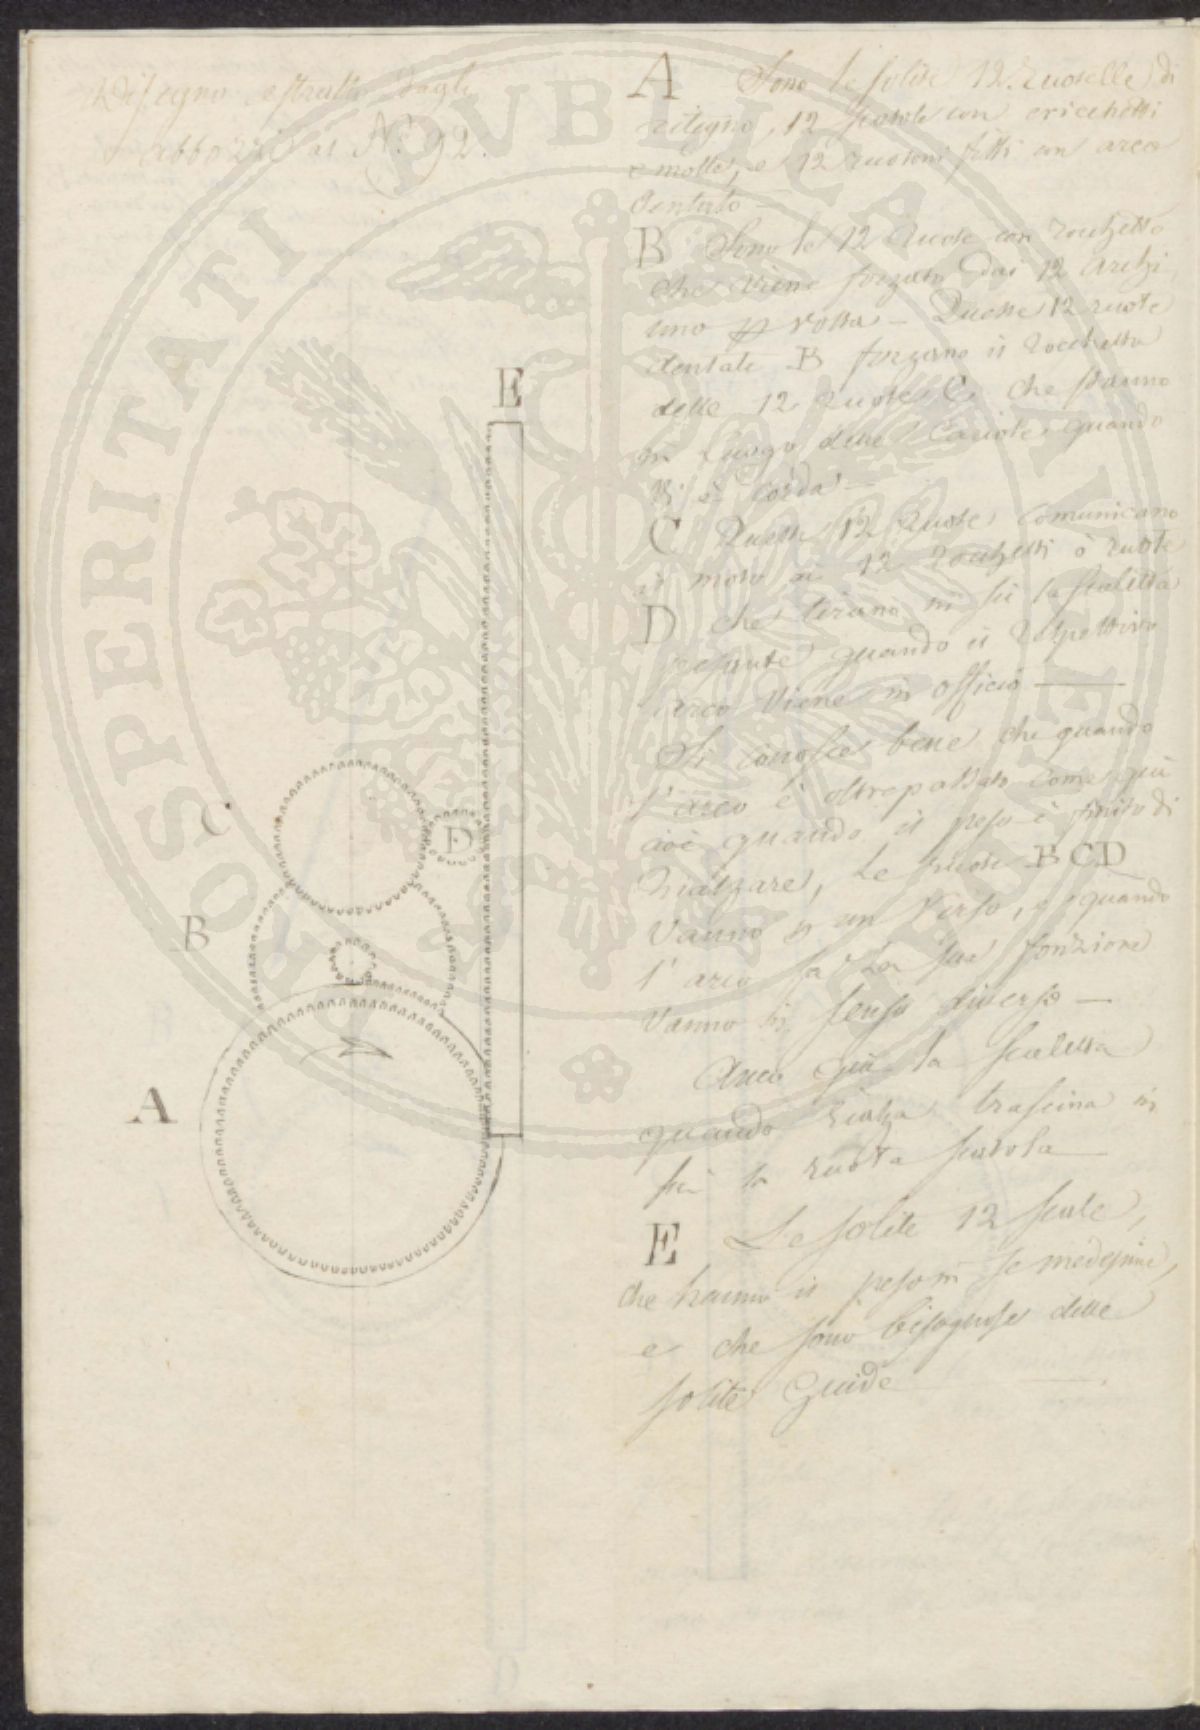 Disegno estratto dagli
abbozzi al N.º 92.
A Sono le solite 12. ruotelle di
ritegno, 12 scatole con cricchetti
e molle, e 12 ruotoni fitti con arco
dentato —
B Sono le 12 Ruote con rocchetto
che viene forzato dai 12 Archi,
uno p volta — Queste 12 ruote
dentate B forzano il rocchetto
delle 12 ruote C che stanno
in luogo delle quando
vi è corda —
C Queste 12 Ruote comunicano
il moto ai 12 rocchetti ò ruote
D che tirano in su la scaletta
pesante quando il rispettivo
arco viene in officio —
Si conosce bene che quando
l'arco è oltrepassato come qui
cioè quando il peso è finito di
rialzare, le ruote B C D
vanno p un verso, e quando
l'arco fa la sua fonzione
vanno in senso diverso —
Anco qui la scaletta
quando rialza trascina in
su la ruota scatola —
E Le solite 12 scale,
che hanno il peso in se medesime,
e che sono bisognose delle
solite Guide —
E
C
D
B
A
PUBLICAE
PROSPERITATI